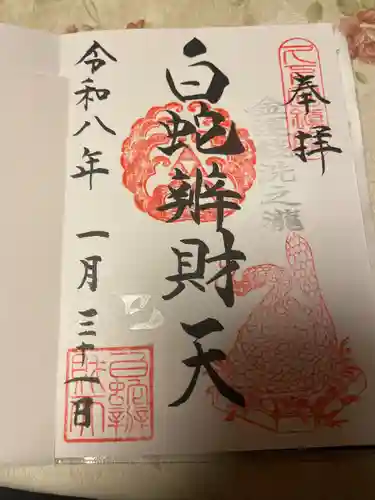 奉拝
金運銭洗之瀧
白蛇辨財天
令和八年 一月三十一日
白蛇辨財天